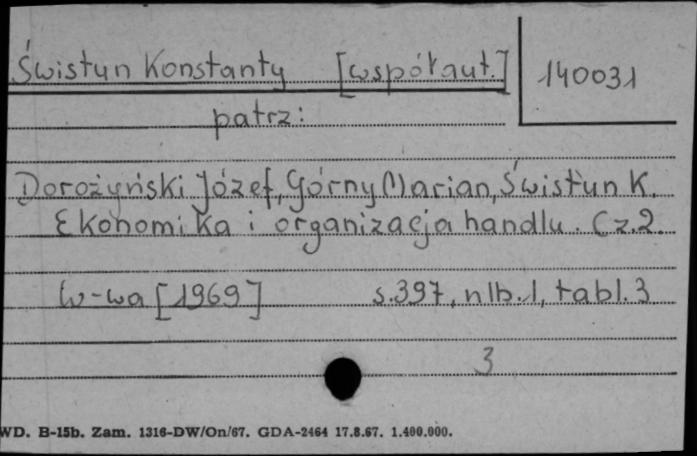 Świstun Konstanty [współaut.] 140031
patrz:
Dorożyński Józef, Górny Marian, Świstun K.
Ekonomika i organizacja handlu. Cz.2.
W-wa [1969] s.397, nlb.1, tabl.3
3
WD. B-15b. Zam. 1316-DW/On/67. GDA-2464 17.8.67. 1.400.000.